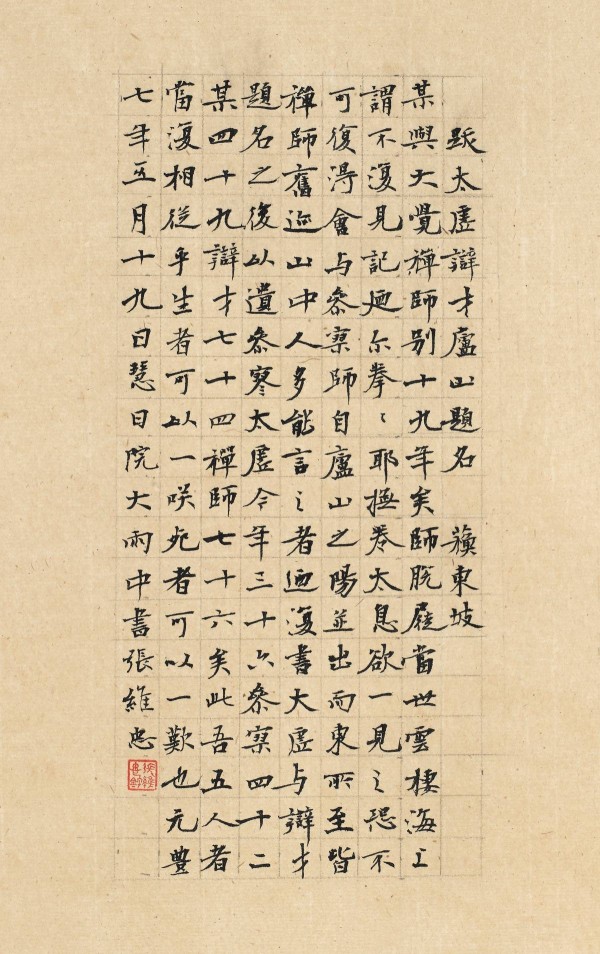 跋太虛辯才廬山題名 蘇東坡
某與大覺禪師別十九年矣師脫屣當世雲棲海上
謂不復見記廼尔拳〻耶撫卷太息欲一見之恐不
可復得會与叅寥師自廬山之陽並出而東所至皆
禪師舊迹山中人多能言之者廼復書太虛与辯才
題名之後以遺叅寥太虛今年三十六叅寥四十二
某四十九辯才七十四禪師七十六矣此吾五人者
當復相從乎生者可以一咲死者可以一歎也元豐
七年五月十九日慧日院大雨中書張維忠